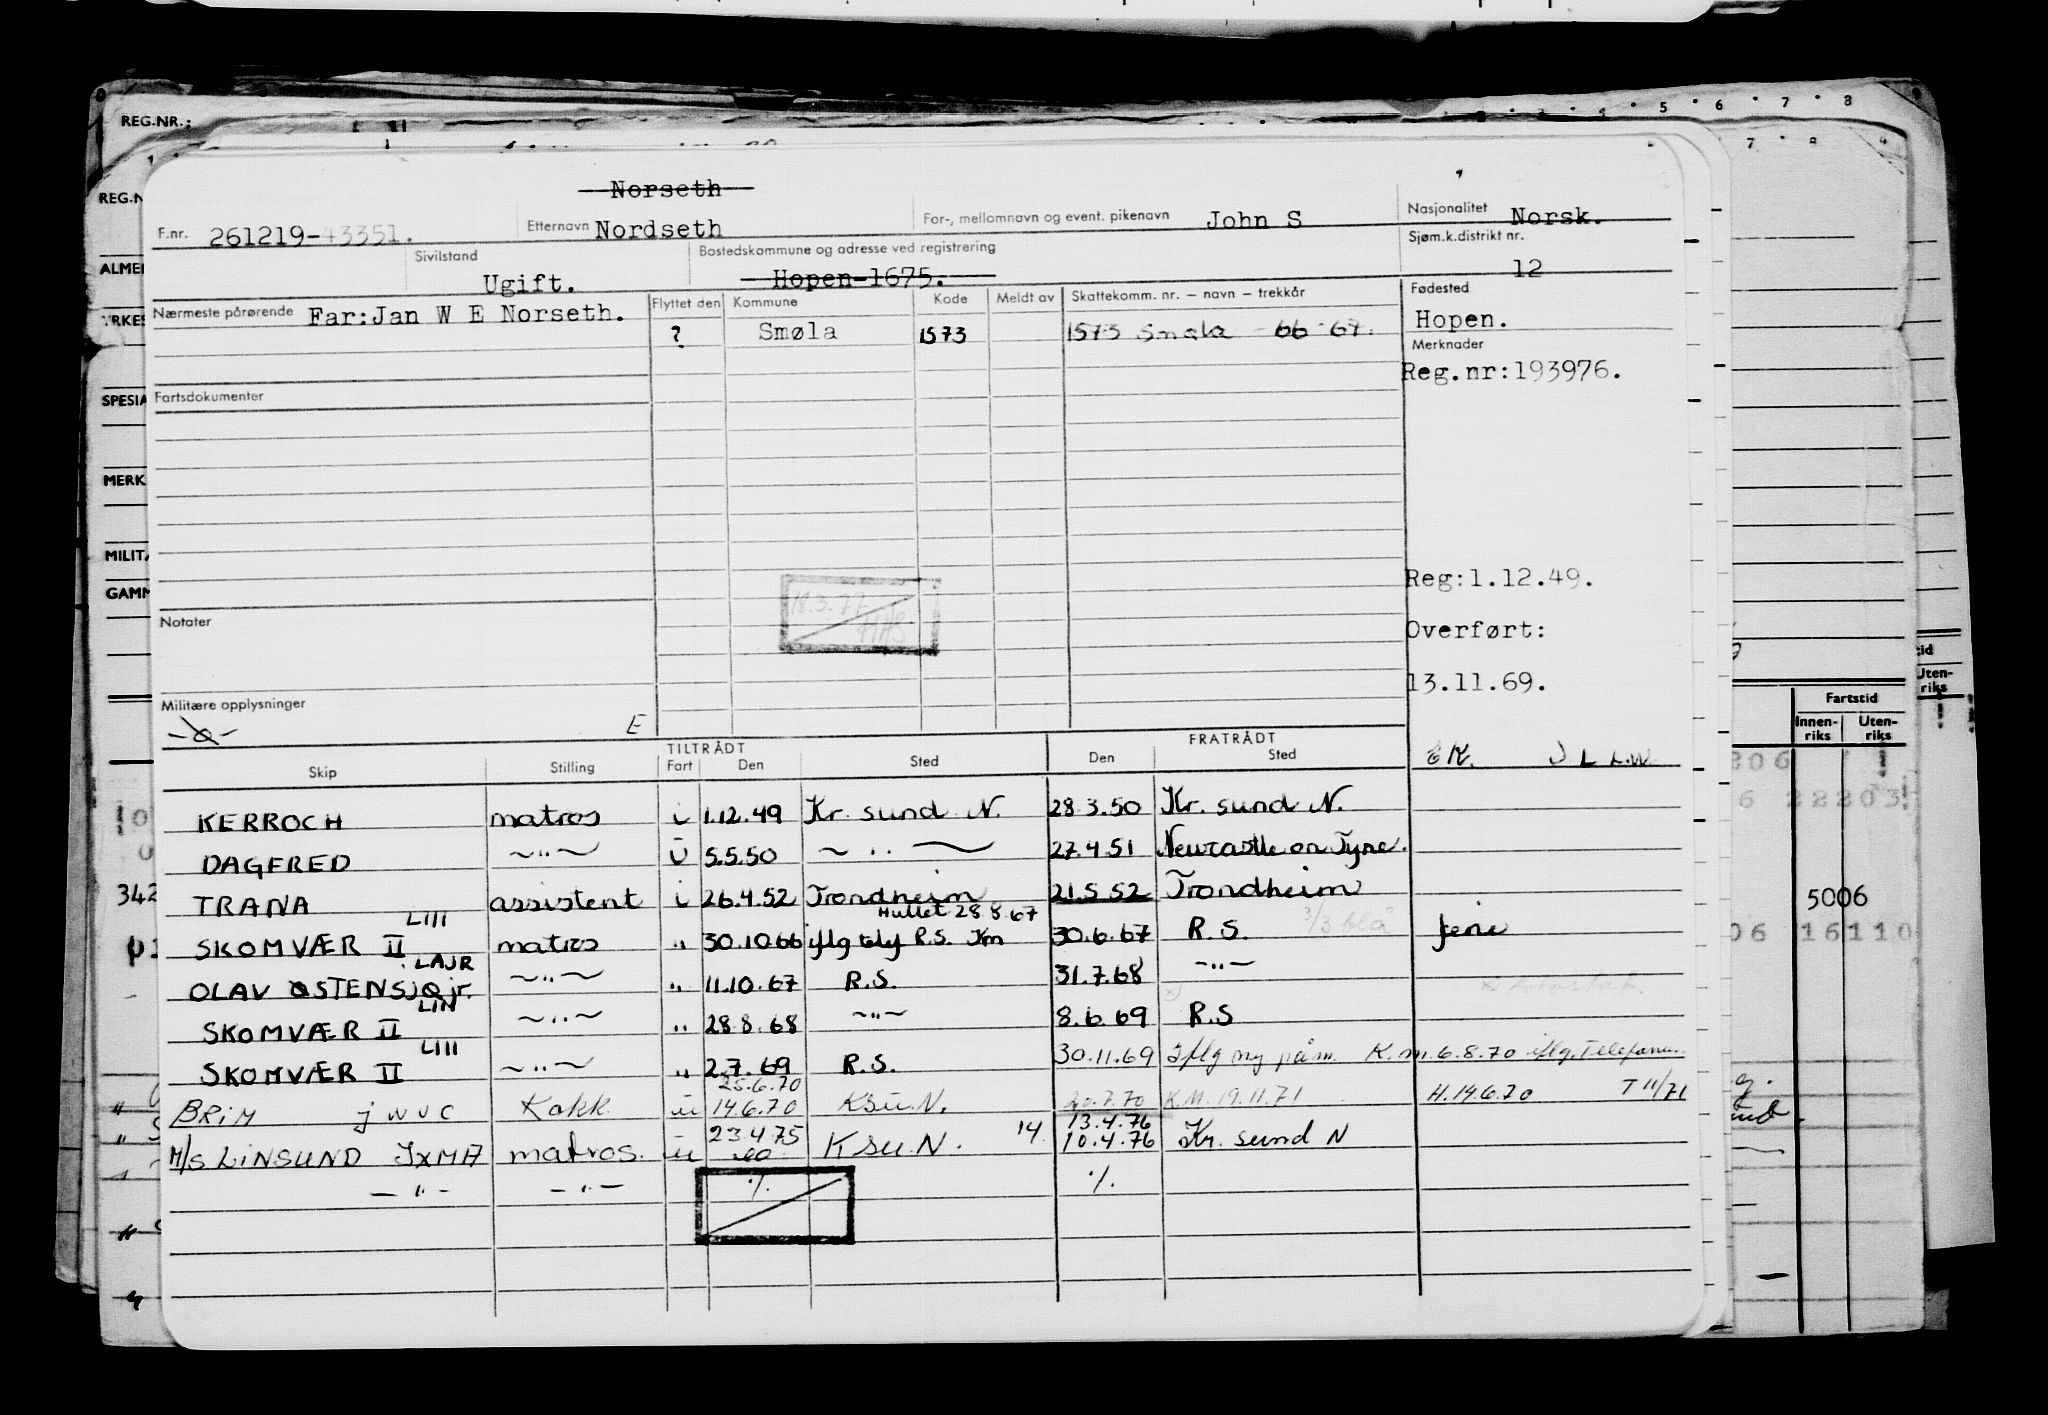 REG.NR.:
5 · 6 · 7 · 8
7 8
REG.N
ALMEN
YRKES
SPESIA
MERK
MILITÆ
GAMM
Norseth
F.nr. 261219-43351. Etternavn Nordseth For-, mellomnavn og event. pikenavn John S Nasjonalitet Norsk.
Sivilstand Ugift. Bostedskommune og adresse ved registrering Hopen-1675. Sjøm.k.distrikt nr. 12
Nærmeste pårørende Far:Jan W E Norseth. Flyttet den Kommune Kode Meldt av Skattekomm. nr. – navn – trekkår Fødested
? Smøla 1573 1573 Smøla 66 67. Hopen.
Merknader
Reg.nr:193976.
Fartsdokumenter
18.3.77
Reg:1.12.49.
Notater
Overført:
13.11.69.
Militære opplysninger
E
TILTRÅDT FRATRÅDT
Skip Stilling Fart Den Sted Den Sted
KERROCH matros i 1.12.49 Kr. sund N. 28.3.50 Kr. sund N.
DAGFRED ~ " ~ U 5.5.50 ~ " ~ 27.4.51 Newcastle on Tyne.
TRANA assistent i 26.4.52 Trondheim 21.5.52 Trondheim
LIII Hullet 28.8.67 3/3 blå
SKOMVÆR II matros " 30.10.66 iflg tlf R.S. Km 30.6.67 R.S. ferie
LAJR
OLAV ØSTENSJØ jr. ~ " ~ " 11.10.67 R.S. 31.7.68 - " -
LIN
SKOMVÆR II ~ " ~ " 28.8.68 ~ " ~ 8.6.69 R.S
LIII
SKOMVÆR II ~ " ~ " 2.7.69 R.S. 30.11.69 Iflg ny påm. K.m. 6.8.70 iflg. Telefonm.
25.6.70
BRIM JWUC Kokk u 14.6.70 KSU.N. 20.7.70 K.M. 19.11.71 H.14.6.70 T 11/71
23.4.75 13.4.76
M/S LINSUND JXMA matros. u KSU.N. 14. 10.4.76 Kr. sund N
- " - - " - ./. ./.
Fartstid
Innen-riks Uten-riks
tid
Uten-riks
22203
342 5006
06 16110